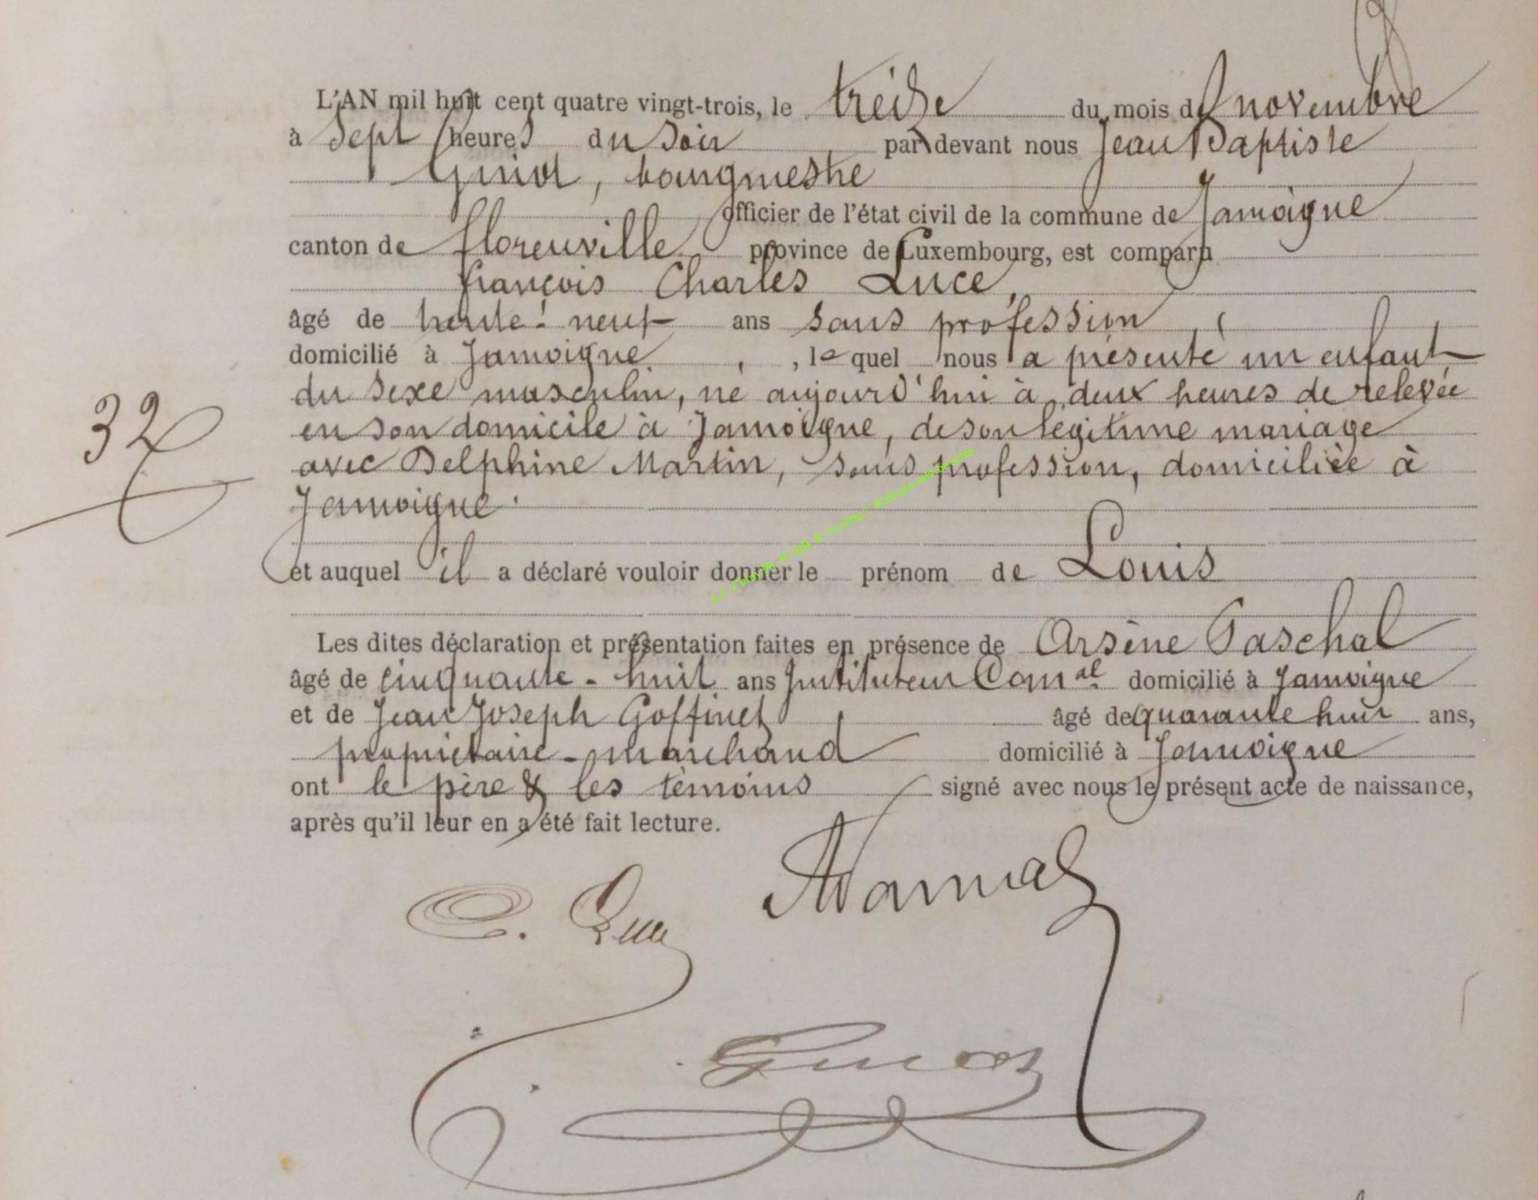 L'AN mil huit cent quatre vingt-trois, le treize du mois de novembre
à sept heures du soir par devant nous Jean Baptiste
Guiot, bourgmestre
officier de l'état civil de la commune de Jamoigne
canton de florenville province de Luxembourg, est comparu
françois Charles Luce,
âgé de trente-neuf ans sans profession,
domicilié à Jamoigne, lequel nous a présenté un enfant
du sexe masculin, né aujourd'hui à deux heures de relevée
en son domicile à Jamoigne, de son légitime mariage
32
avec Delphine Martin, sans profession, domiciliée à
Jamoigne.
et auquel il a déclaré vouloir donner le prénom de Louis
Les dites déclaration et présentation faites en présence de Arsène Paschal
âgé de cinquante-huit ans Instituteur Comal domicilié à Jamoigne
et de Jean Joseph Goffinet âgé de quarante huit ans,
propriétaire-marchand domicilié à Jamoigne
ont le père & les témoins signé avec nous le présent acte de naissance,
après qu'il leur en a été fait lecture.
C. Luce
Guiot